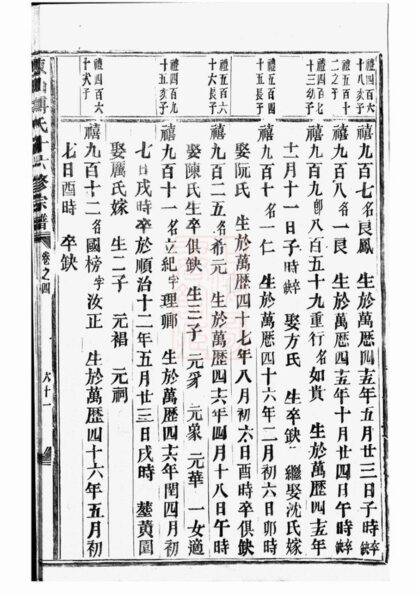 禮四百六十八長子
禮五百十二之子
禮四百七十三幼子
禮五百四十五長子
禮五百六十六長子
禮四百九十五長子
禮四百六十次子
禧九百七名良鳳 生於萬歷四十五年五月廿三日子時卒缺
禧九百八名一良 生於萬歷四十五年十月廿四日午時卒缺
禧九百九即八百五十九重行名如貴 生於萬歷四十五年
十二月十一日子時缺卒 娶方氏 生卒缺 繼娶沈氏嫁
禧九百十名一仁 生於萬歷四十六年二月初六日卯時
娶阮氏 生於萬歷四十七年八月初六日酉時卒俱缺
禧九百二五名希元 生於萬歷四十六年四月十八日午時
娶陳氏生卒俱缺 生三子 元豸 元象 元華 一女適
禧九百十一名立紀字理卿 生於萬歷四十六年閏四月初
七日戌時卒於順治十二年五月廿三日戌時 塟黄園
娶厲氏嫁 生二子 元裮 元祠
禧九百十二名國榜字汝正 生於萬歷四十六年五月初
七日酉時 卒缺
氏十六修宗譜
卷之四
六十一